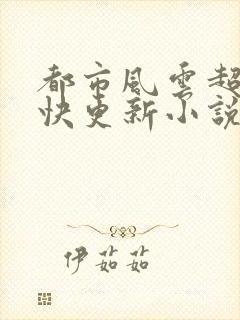 都市风云超
快更新小說
伊茹茹